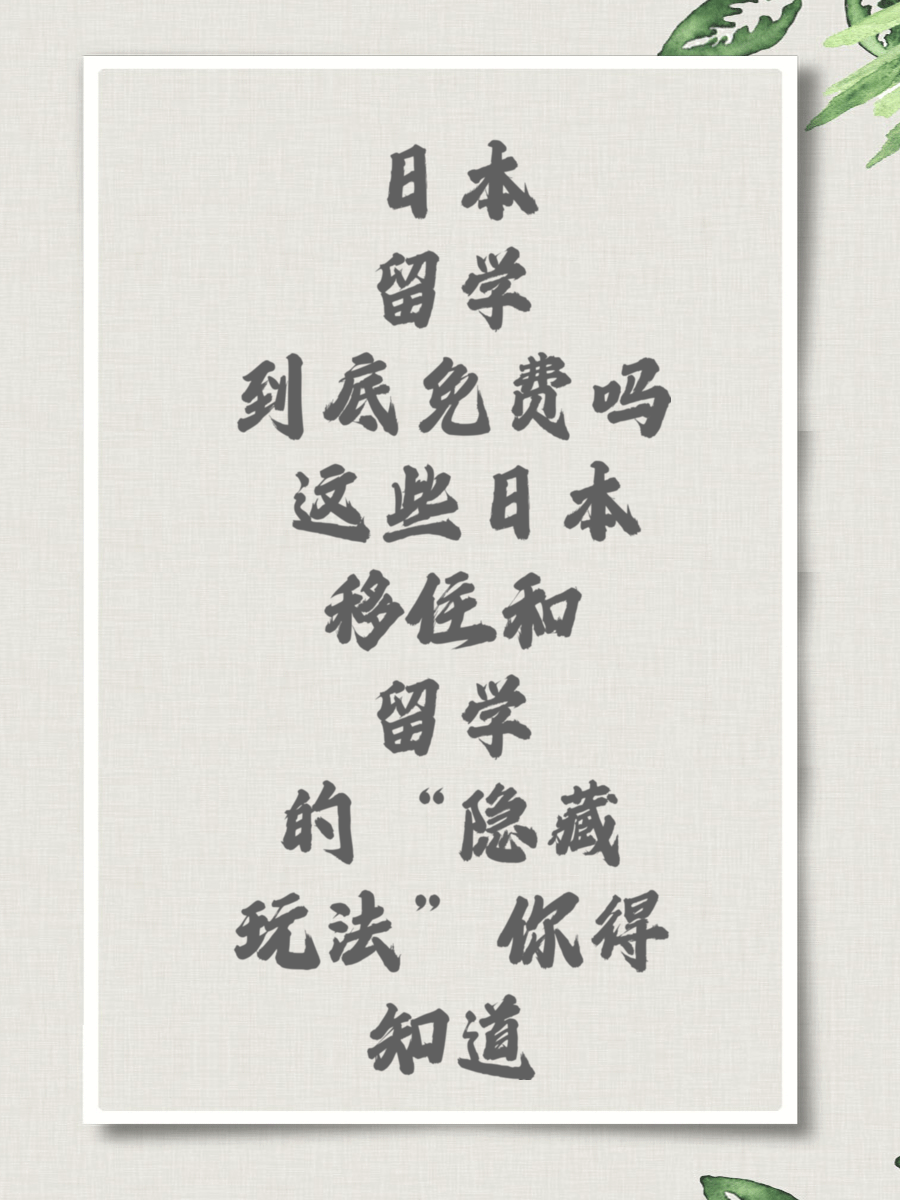 日本
留学
到底免费吗
这些日本
移住和
留学
的“隐藏
玩法”你得
知道